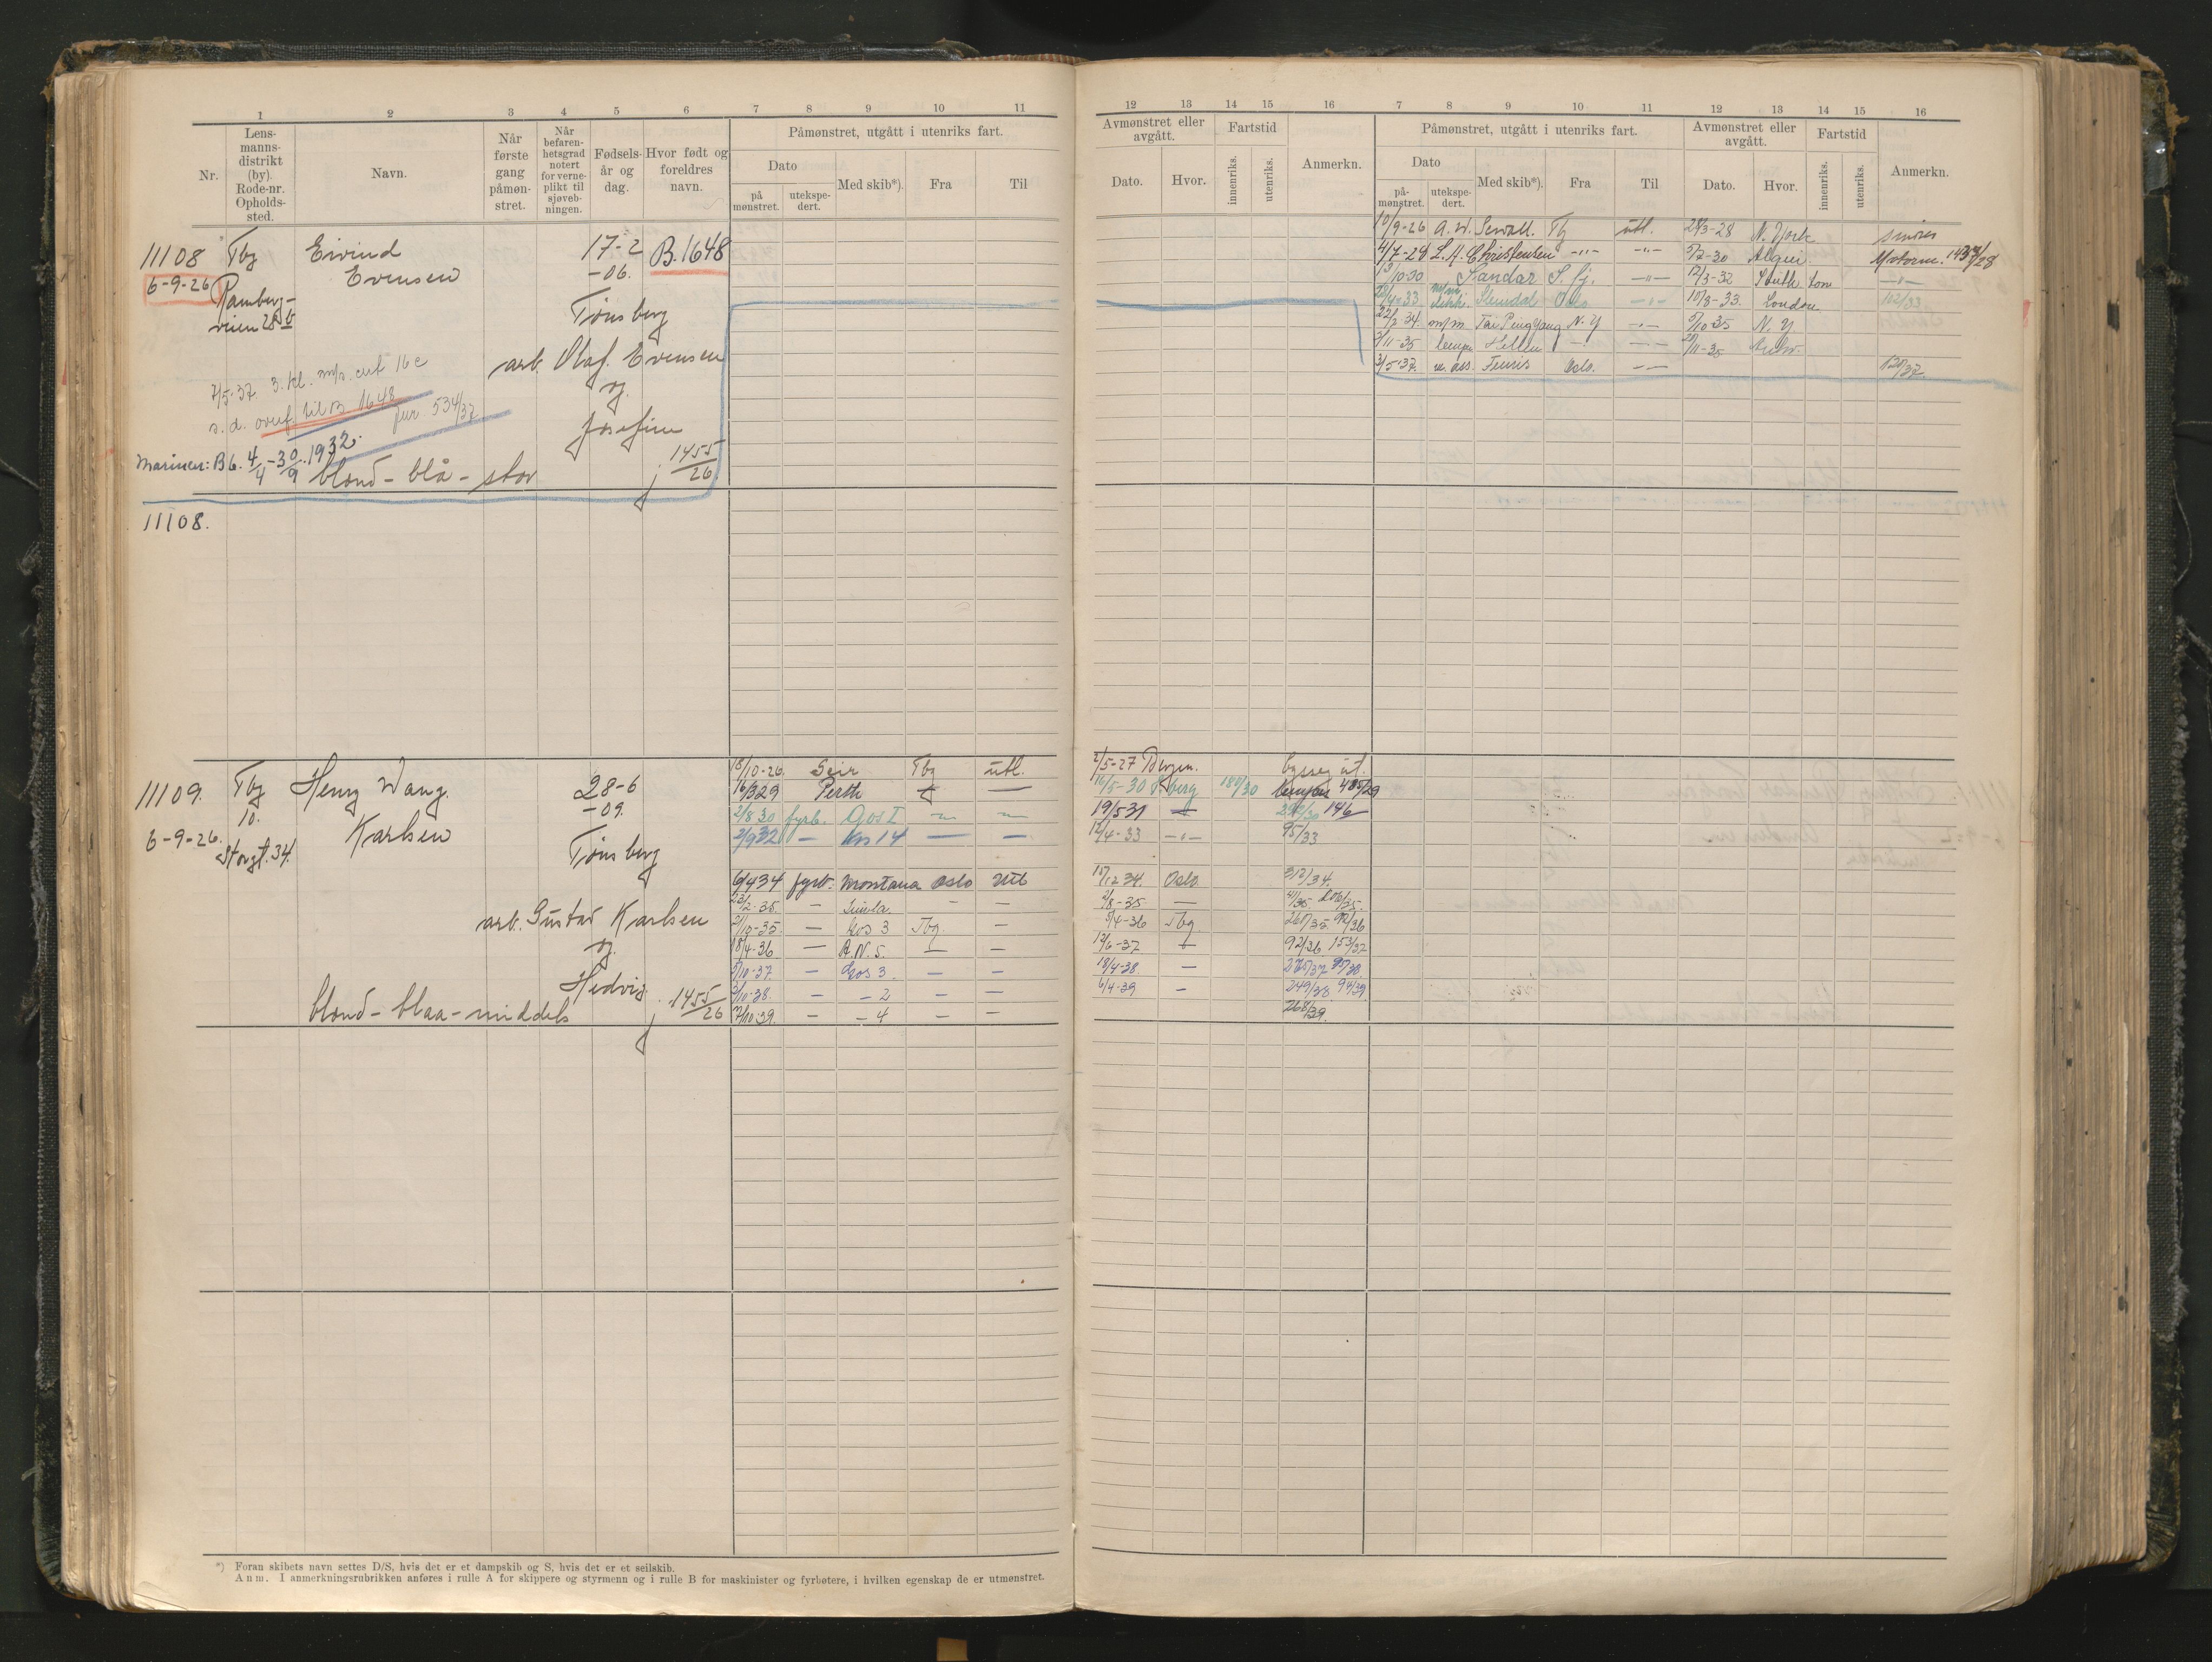 1 2 3 4 5 6 7 8 9 10 11
Nr.
Lens-
manns-
distrikt
(by).
Rode-nr.
Opholds-
sted.
Navn.
Når
første
gang
påmøn-
stret.
Når
befaren-
hetsgrad
notert
for verne-
plikt til
sjøveb-
ningen.
Fødsels-
år og
dag.
Hvor født og
foreldres
navn.
Påmønstret, utgått i utenriks fart.
Dato
på
mønstret.
utekspe-
dert.
Med skib*).
Fra
Til
11108 Tbg Eivind 17-2 B.1648
6-9-26 Evensen -06.
Ramberg-
veien 28 b
Tønsberg
arb. Olaf Evensen
og
Josefine
7/5-37 3. kl. 16c
s. d. overf. til B 1648 jnr. 534/37
Mariner: B 6. 4/4-30/9 1932.
blond - blå - stor j 1455/26
11108.
11109. Tbg Henry Wang 28-6
10. Karlsen -09.
6-9-26. Storgt. 34.
Tønsberg
arb. Gustav Karlsen
og
Hedvig
blond - blaa - middels j 1455/26
18/10-26. Geir Tbg utl.
16/3 29 Perth
2/8 30 fyrb. Gos I
2/9 32 — Kos 14 — —
6/4 34 fyrb. Montana Oslo Utl
23/2-35. — Simla. — —
21/10-35 — Kos 3 Tbg. —
18/4-36 — R.N.5. — —
5/10-37 — Kos 3. — —
3/10-38. — — 2 — —
7/10-39. — — 4 — —
*) Foran skibets navn settes D/S, hvis det er et dampskib og S, hvis det er et seilskib.
Anm. I anmerkningsrubrikken anføres i rulle A for skippere og styrmenn og i rulle B for maskinister og fyrbøtere, i hvilken egenskap de er utmønstret.
12 13 14 15 16 7 8 9 10 11 12 13 14 15 16
Avmønstret eller
avgått.
Fartstid
Dato.
Hvor.
innenriks.
utenriks.
Anmerkn.
Påmønstret, utgått i utenriks fart.
Dato
på-
mønstret.
utekspe-
dert.
Med skib*).
Fra
Til
Avmønstret eller
avgått.
Fartstid
Dato.
Hvor.
innenriks.
utenriks.
Anmerkn.
10/9-26 A. W. Sewall. Tbg utl. 28/3-28 N. York smører
4/7-28 L. A. Christensen -"- -"- 5/2-30 Algier. Motorm. 1433/28
13/10-30 Sandar S. fj. -"- 12/3-32 South. tom -"-
28/4-33 Slemdal Oslo -"- 10/8-33. London 112/33
22/2-34. m/m Tai Ping Yang N. Y -"- 5/10 35 N. Y.
5/11-35 Hellen -"- 21/11-35 Antw.
3/5-37. m. ass. Fenris Oslo. — 120/37.
2/5-27 Bergen. bysseg ut.
16/5-30 T.berg 180/30 lemper 485/29
19/5 31 292/30 146
12/4-33 -"- 95/33
15/12 34. Oslo 312/34.
2/8-35 — 41/35. 206/35.
5/4-36 Tbg 265/35 92/36
12/6-37 92/36 153/37
18/4-38. — 275/37 95/38.
6/4-39 — 249/38. 94/39.
268/39.